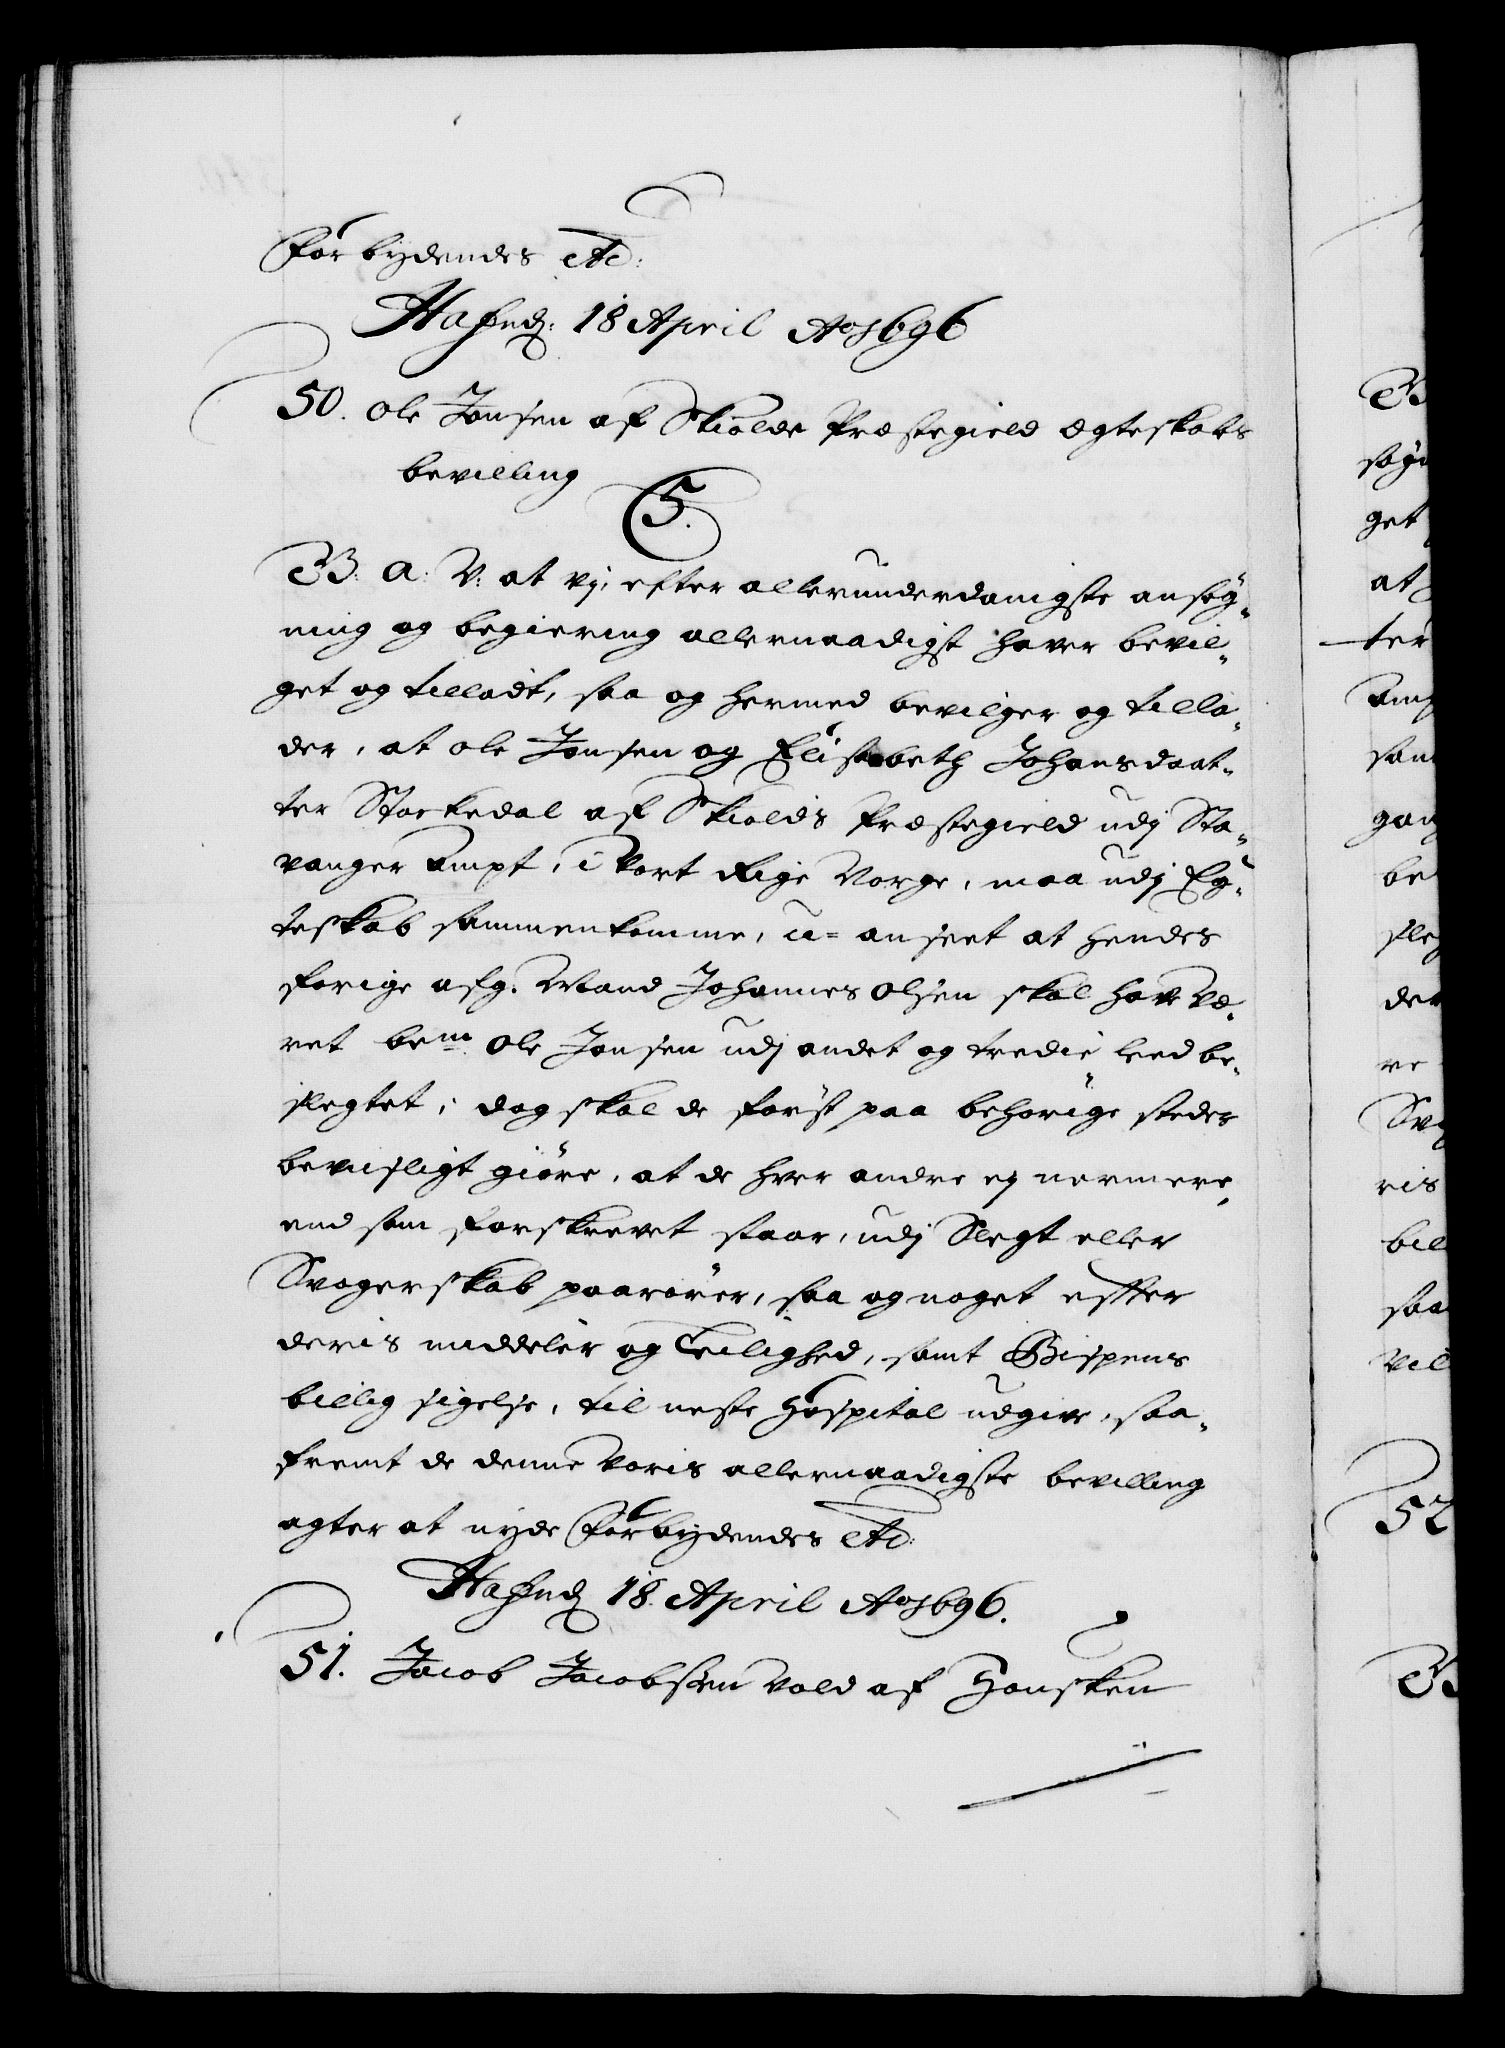 Forbydendes etc:
Hafniæ: 18 April Ao 1696
50. Ole Jonsen af Skiolde Præstegield Egteskabs
bevilling
C5.
G: A: V: at vj, efter allerunderdanigste ansøg-
ning og begiering allernaadigst hafver bevil-
get og tilladt, saa og hermed bevilger og tilla-
der, at Ole Jonsen og Elisabeth Johansdaat-
ter Stockedal af Skiolds Præstegield udj Sta-
vanger Ampt, i Vort Rige Norge, maa udj Eg-
teskab sammenkomme, u-anseet at hendes
forige afg. Mand Johannes Olsen skal hafve væ-
ret bem.te Ole Jonsen udj andet og tredie leed be-
slegtet; dog skal de først paa behørige steder
bevisligt giøre, at de hver andre ej nermere,
end som forskrevet staar, udj Slegt eller
Svogerskab paarører, saa og noget effter
deris middeler og Leilighed, samt Bispens
billig sigelse, til neste Hospital udgive, saa-
fremt de denne Voris allernaadigste bevilling
agter at nyde Forbydendes etc:
Hafniæ 18. April Ao 1696.
51. Jacob Jacobsen Vold af Hansken
B
get
at
ter
Amp
sam
be
sleg
der
re
Svog
ris
bil
saa
vil
52
B